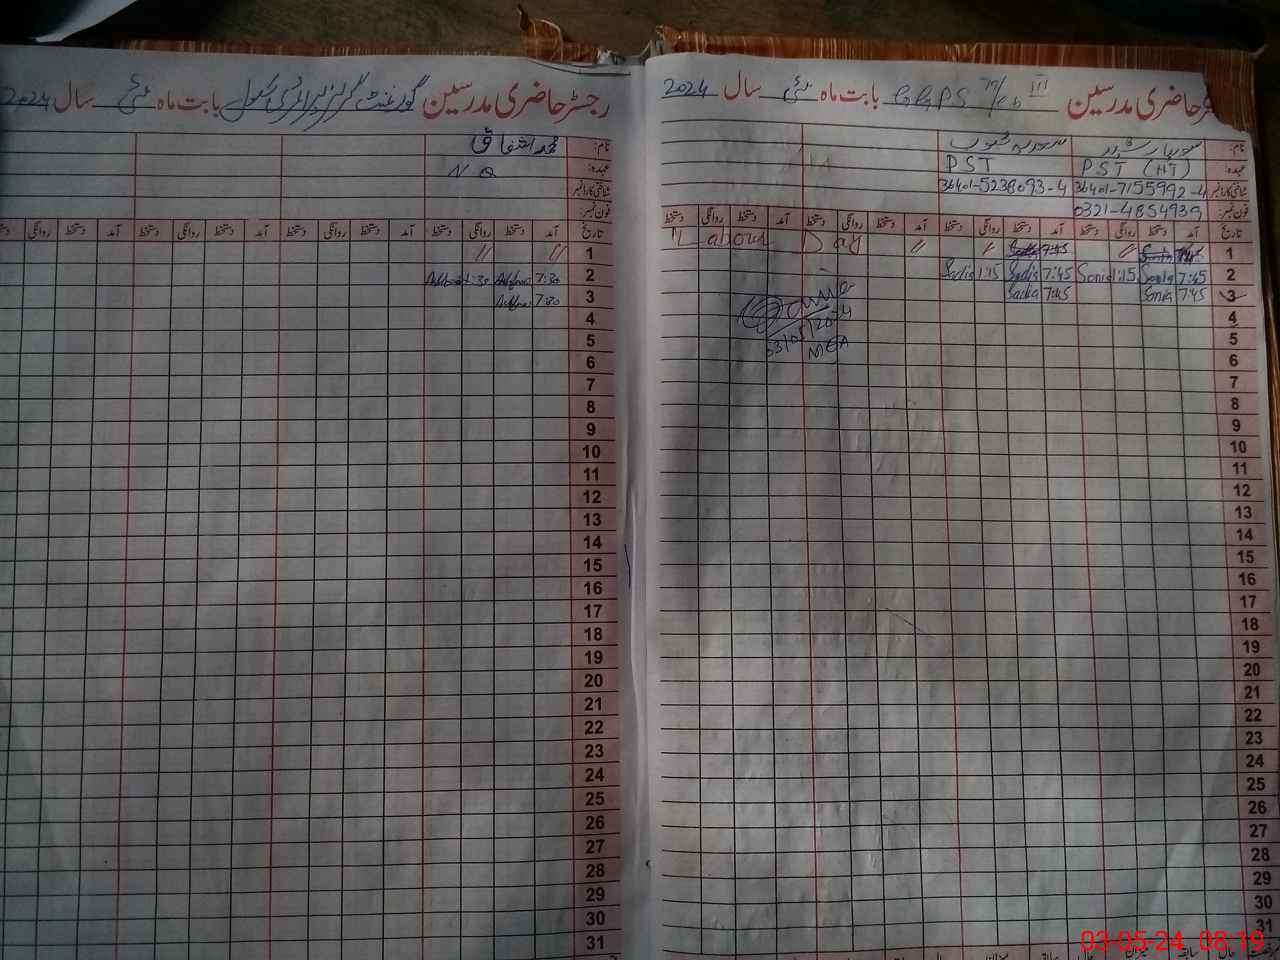 رجسٹر حاضری مدرسین گورنمنٹ گرلز پرائمری سکول بابت ماہ مئی سال 2024
نام: محمد اشفاق
عہدہ: N Q
شناختی کارڈ نمبر
فون نمبر:
تاریخ آمد دستخط روانگی دستخط آمد دستخط روانگی دستخط آمد دستخط روانگی دستخط آمد دستخط روانگی دستخط
1 // //
2 7:30 1:30
3 7:30
4
5
6
7
8
9
10
11
12
13
14
15
16
17
18
19
20
21
22
23
24
25
26
27
28
29
30
31
حاضری مدرسین GGPS 79/EB III بابت ماہ مئی سال 2024
نام:
عہدہ: PST (HT) PST
شناختی کارڈ نمبر 36401-7155992-4 36401-5238093-4
فون نمبر: 0321-4854939
تاریخ آمد دستخط روانگی دستخط آمد دستخط روانگی دستخط آمد دستخط روانگی دستخط آمد دستخط روانگی دستخط
1 7:45 Sonia // 7:45 Sadia // // Labour Day
2 7:45 Sonia 1:15 Sonia 7:45 Sadia 1:15 Sadia
3 7:45 Sonia 7:45 Sadia
03/05/2024
MEA
4
5
6
7
8
9
10
11
12
13
14
15
16
17
18
19
20
21
22
23
24
25
26
27
28
29
30
31
03-05-24 08:19